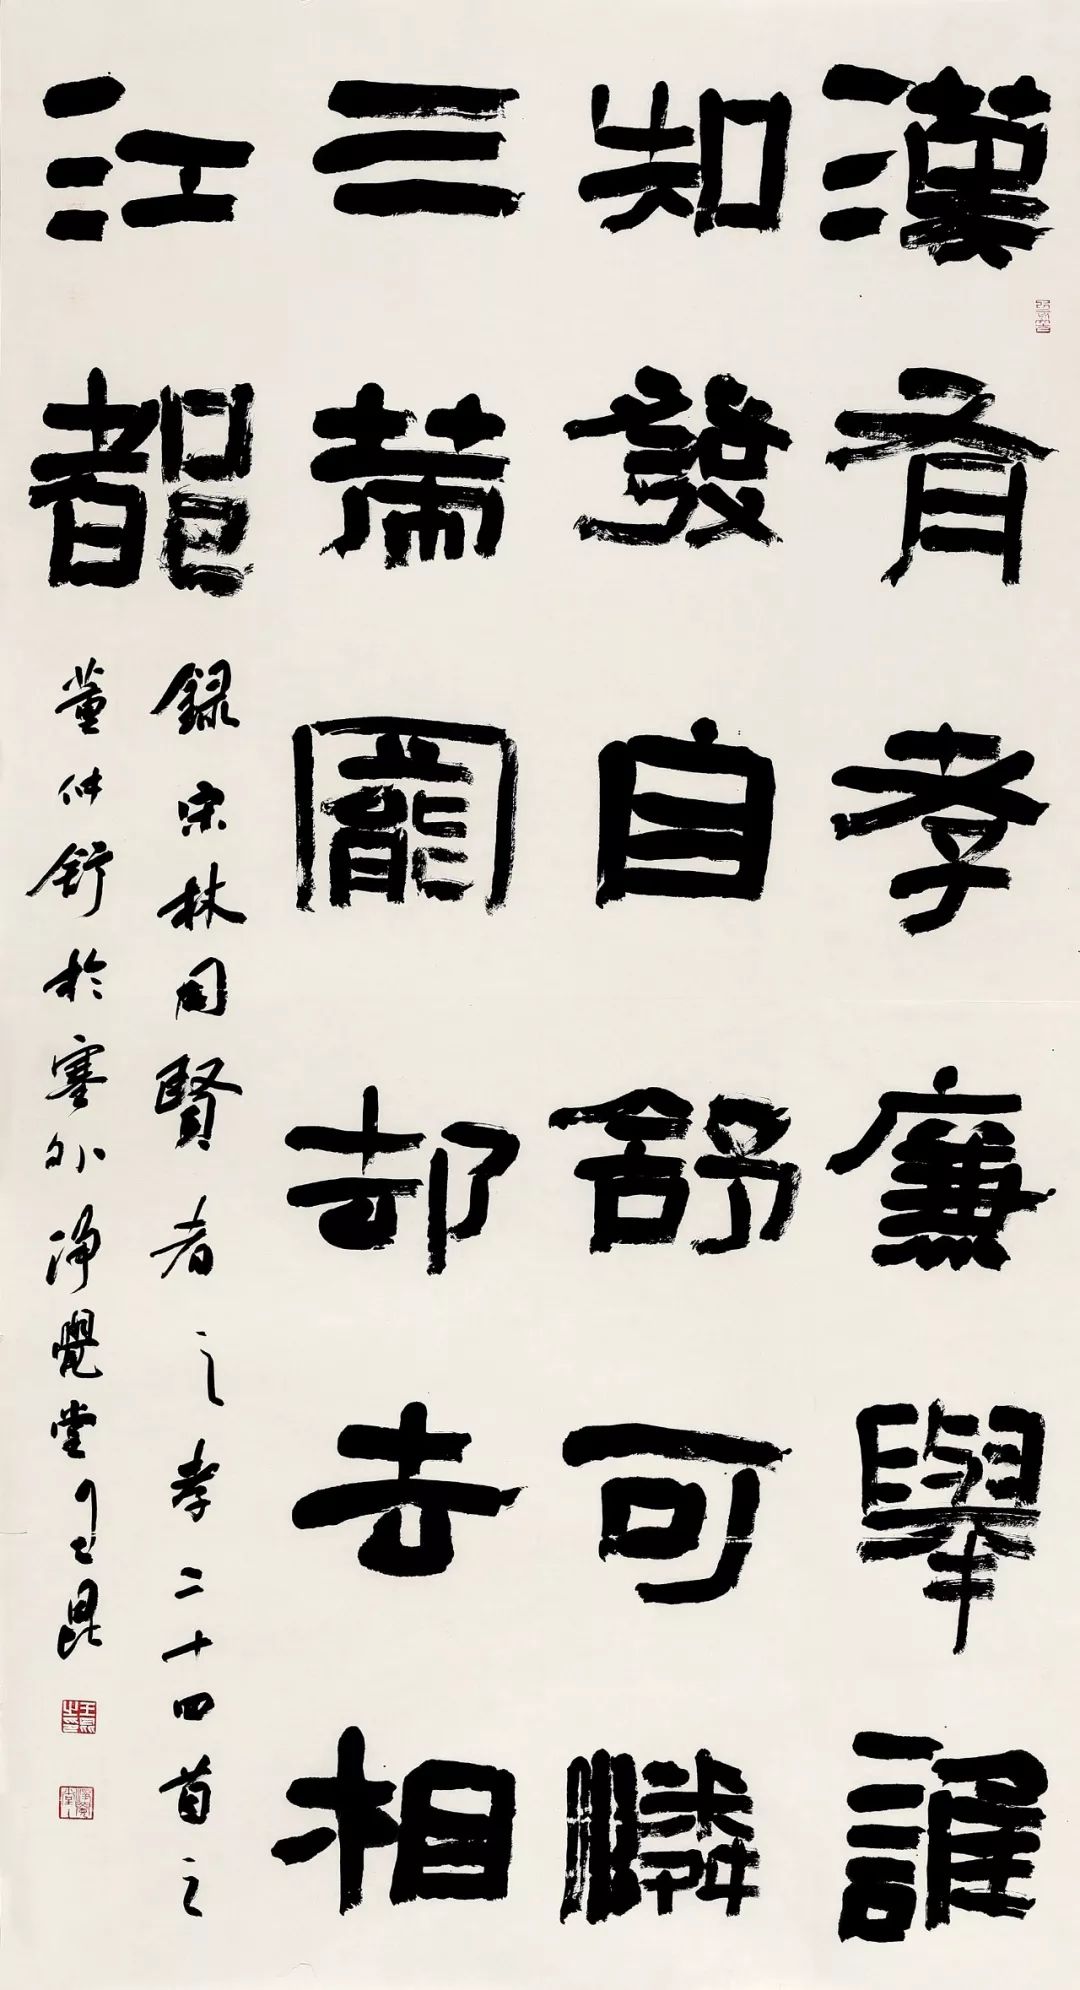 漢有孝廉舉誰
知發自舒可憐
三策罷却去相
江都
録宋林同賢者之孝二十四首之
董仲舒於塞外净覺堂王昆